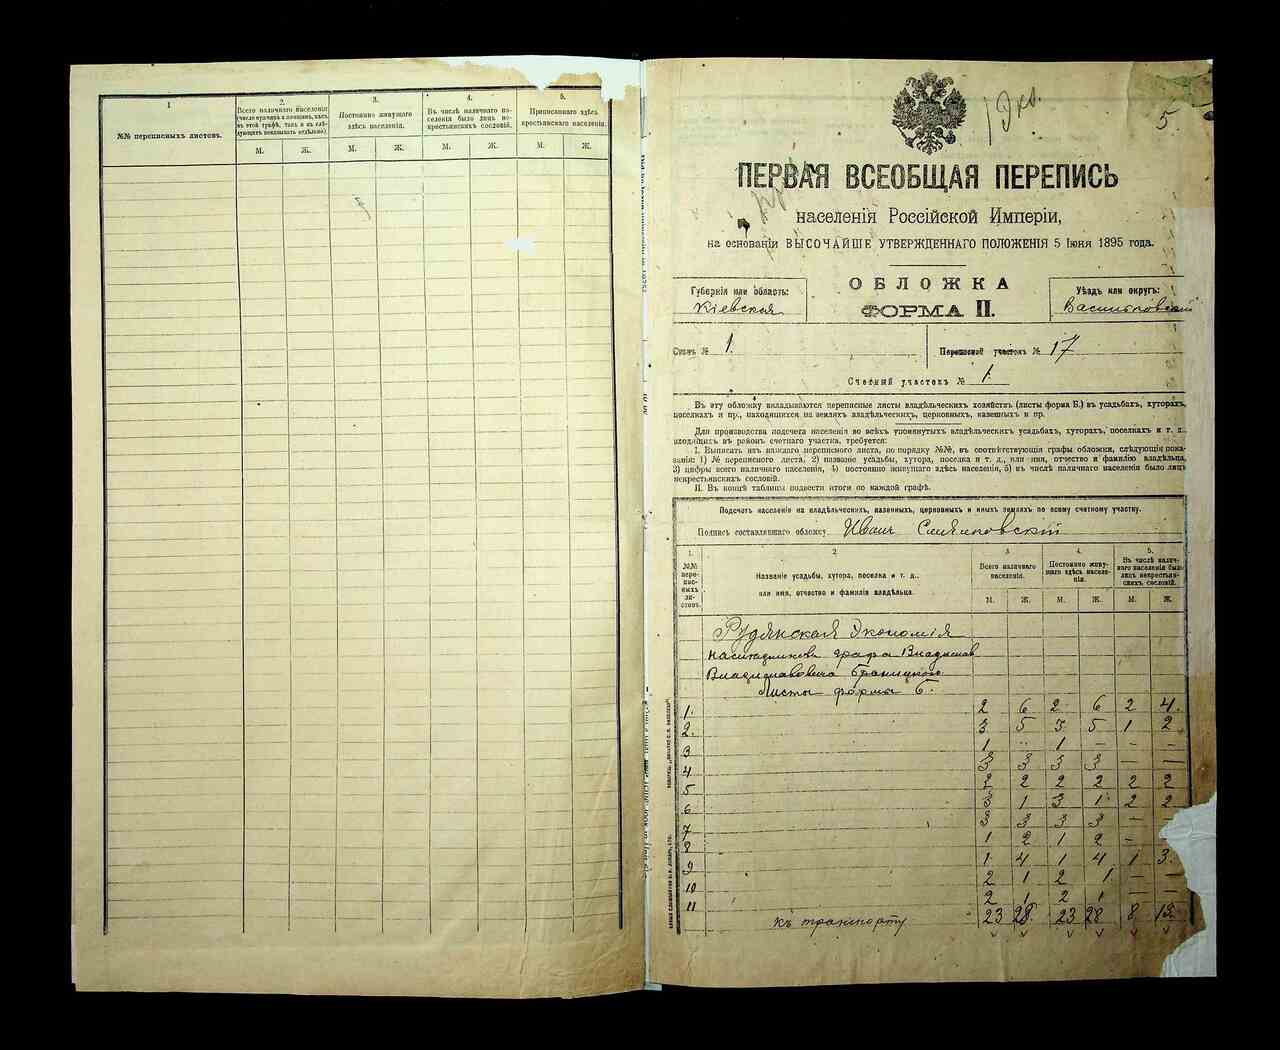 1
№№ переписныхъ листовъ.
2.
Всего наличнаго населенія
М.
Ж.
3.
Постоянно живущаго здѣсь населенія.
М.
Ж.
4.
Въ числѣ наличнаго на-
селенія было лицъ не-
крестьянскихъ сословій.
М.
Ж.
5.
Приписаннаго здѣсь
крестьянскаго населенія.
М.
Ж.
5.
ПЕРВАЯ ВСЕОБЩАЯ ПЕРЕПИСЬ
населенія Россійской Имперіи,
на основаніи ВЫСОЧАЙШЕ УТВЕРЖДЕННАГО ПОЛОЖЕНІЯ 5 Іюня 1895 года.
ОБЛОЖКА
ФОРМА II.
Губернія или область:
Кіевская
Уѣздъ или округъ:
Васильковскій
Станъ № 1.
Переписной участокъ № 17
Счетный участокъ № 1.
Въ эту обложку вкладываются переписные листы владѣльческихъ хозяйствъ (листы форма Б.) въ усадьбахъ, хуторахъ,
поселкахъ и пр., находящихся на земляхъ владѣльческихъ, церковныхъ, казенныхъ и пр.
Для производства подсчета населенія во всѣхъ упомянутыхъ владѣльческихъ усадьбахъ, хуторахъ, поселкахъ и т. д.,
входящихъ въ районъ счетнаго участка, требуется:
I. Выписать изъ каждаго переписного листа, по порядку №№, въ соотвѣтствующія графы обложки, слѣдующія пока-
занія: 1) № переписного листа, 2) названіе усадьбы, хутора, поселка и т. д., или имя, отчество и фамилію владѣльца,
3) цифры всего наличнаго населенія, 4) постоянно живущаго здѣсь населенія, 5) въ числѣ наличнаго населенія было лицъ
некрестьянскихъ сословій.
II. Въ концѣ таблицы подвести итоги по каждой графѣ.
Подсчетъ населенія на владѣльческихъ, казенныхъ, церковныхъ и иныхъ земляхъ по всему счетному участку.
Подпись составлявшаго обложку Иванъ
1.
№№ пере-
пис-
ныхъ
ли-
стовъ.
2
Названіе усадьбы, хутора, поселка и т. д.,
или имя, отчество и фамилія владѣльца.
3
Всего наличнаго
населенія.
М. Ж.
4.
Постоянно живу-
щаго здѣсь населе-
нія.
М. Ж.
5.
Въ числѣ налич-
наго населенія было
лицъ некрестьян-
скихъ сословій.
М. Ж.
Рудянская Экономія
наслѣдниковъ графа Владислав
Владиславовича Браницкого
Листы формы Б.
1. 2 6 2 6 2 4.
2. 3 5 3 5 1 2
3 1 " 1 – – –
4 3 3 3 3 — —
5 2 2 2 2 2 2
6 3 1 3 1 2 2
7 3 3 3 3 – –
8 1 2 1 2 –
9 1 4 1 4 1 3.
10 2 1 2 1 – –
11 2 1 2 1 – –
къ транспорту 23 28 23 28 8 13